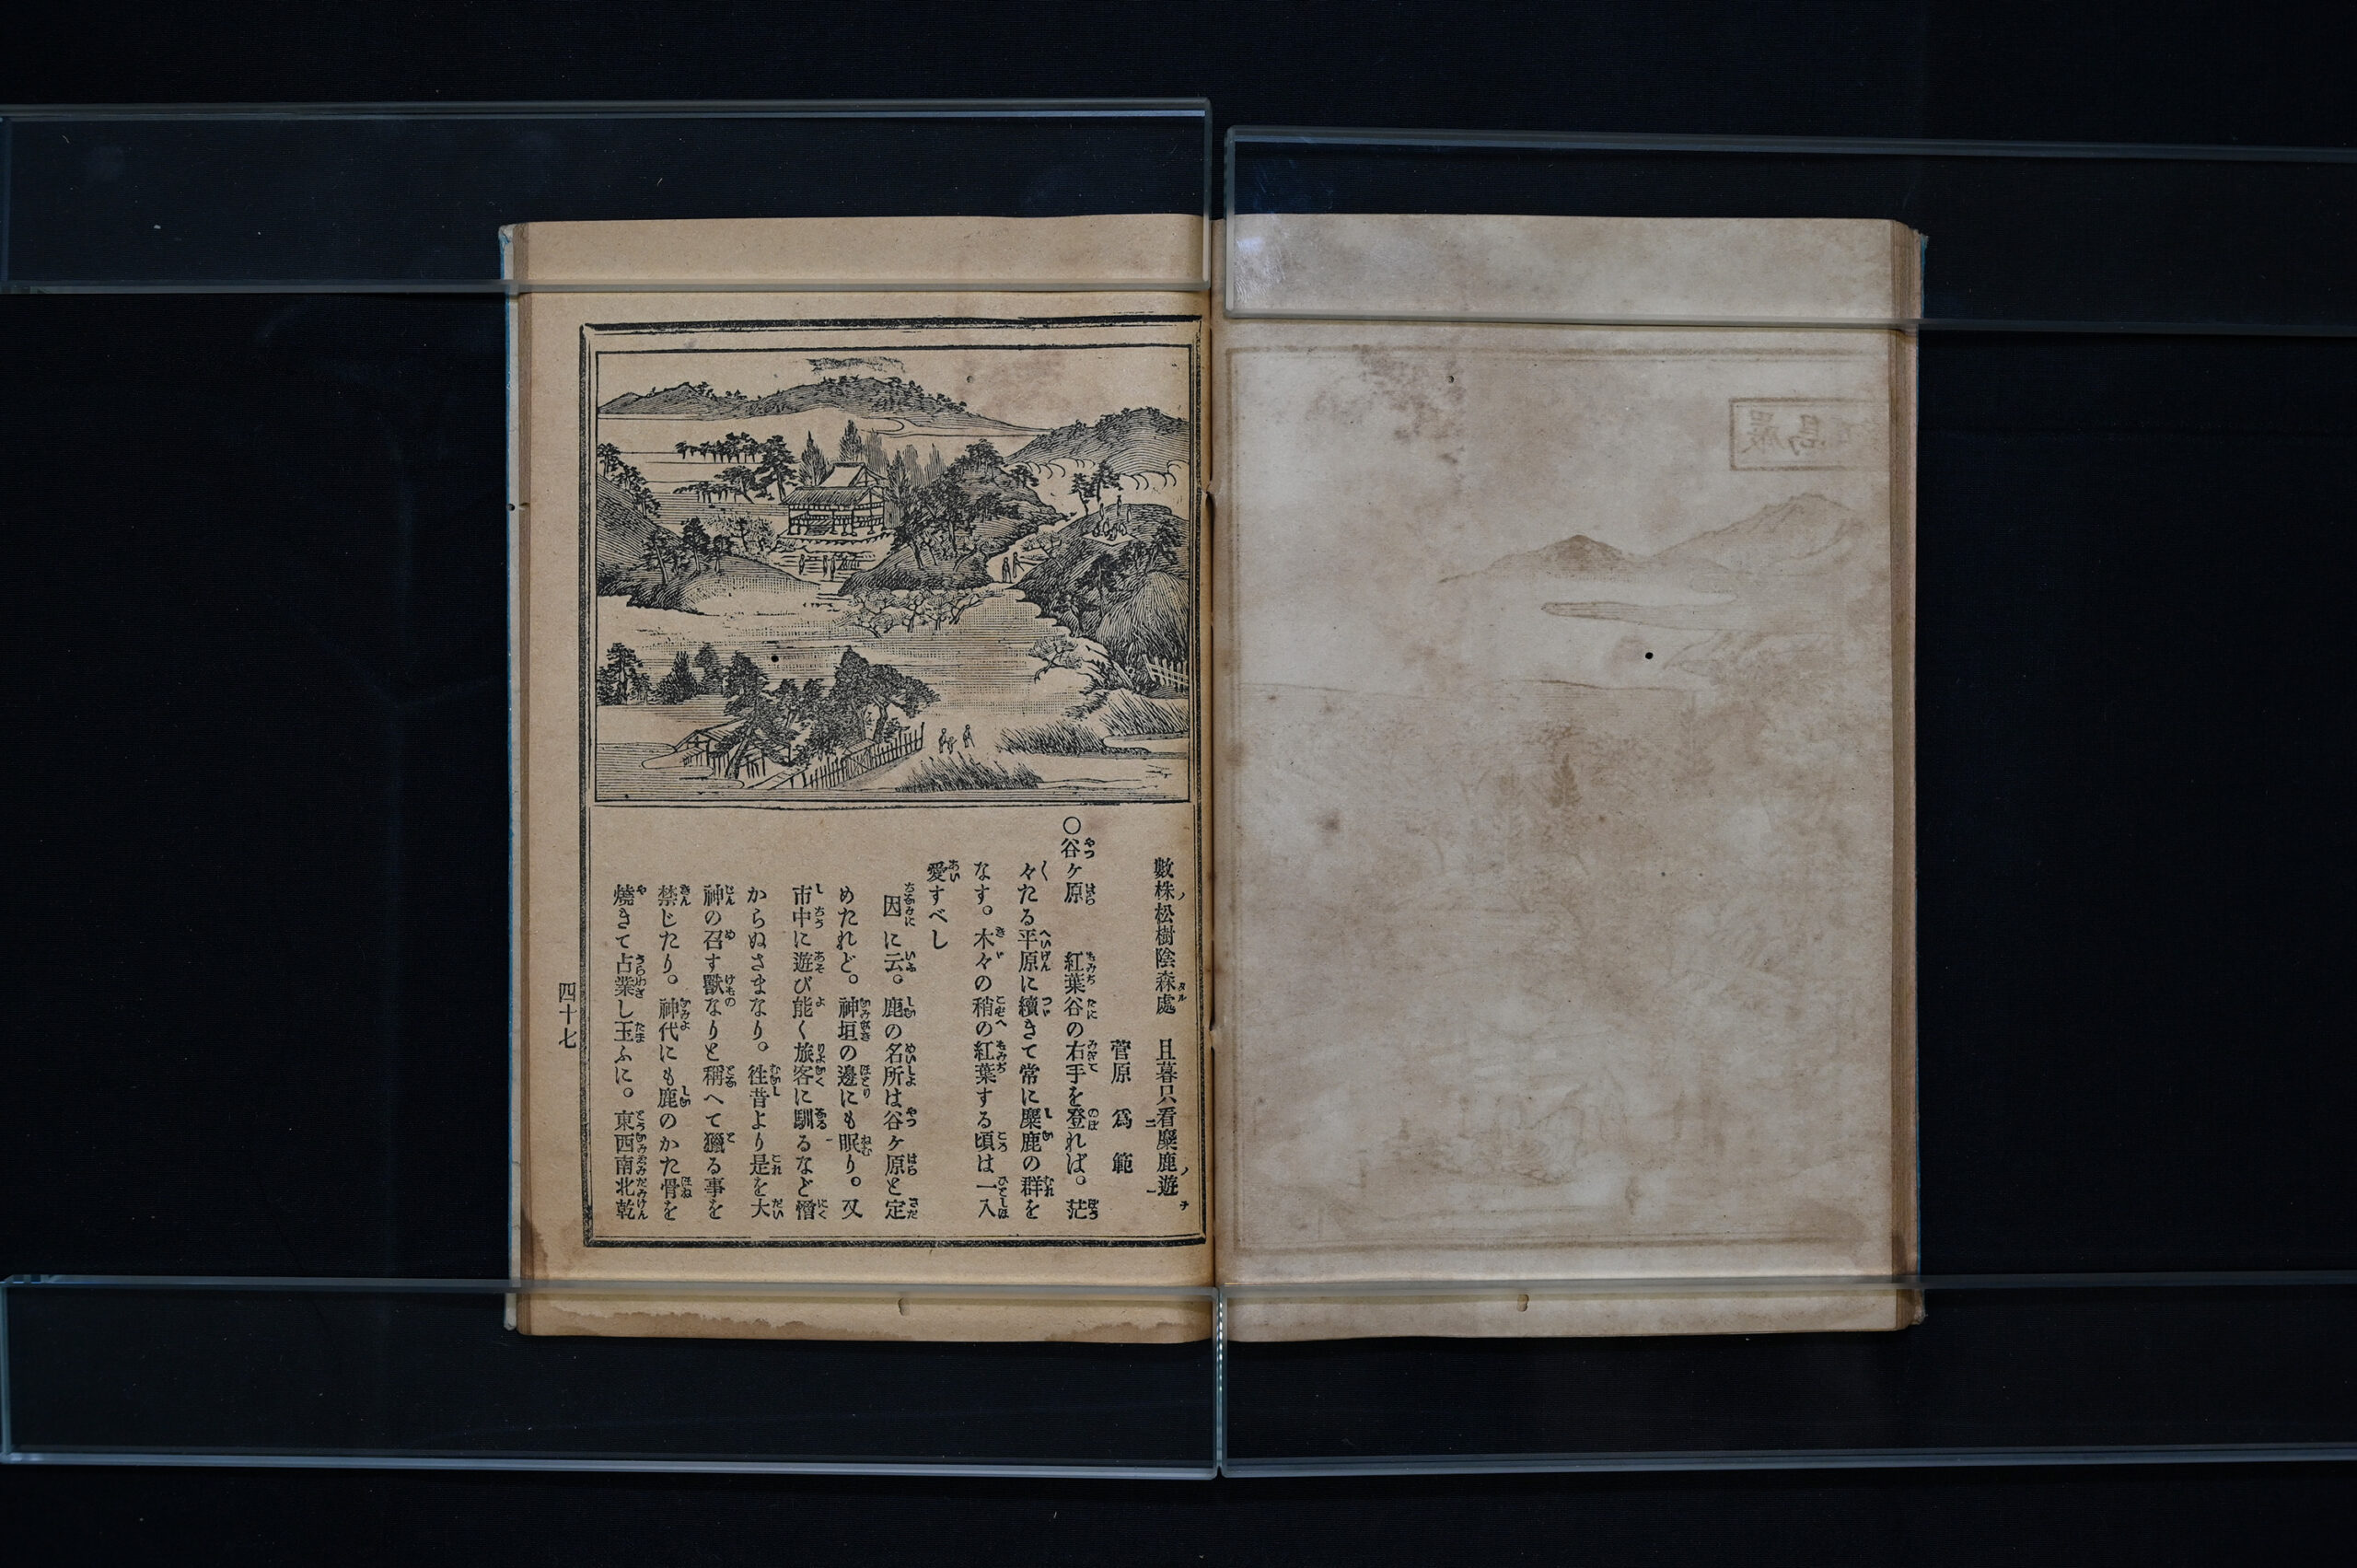 數株松樹陰森處　且暮只看麋鹿遊
菅原爲範
〇谷ヶ原　紅葉谷の右手を登れば。茫
々たる平原に續きて常に麋鹿の群を
なす。木々の稍の紅葉する頃は一入
愛すべし
因に云。鹿の名所は谷ヶ原と定
めたれど。神垣の邊にも眠り。又
市中に遊び能く旅客に馴るなど憎
からぬさまなり。徃昔より是を大
神の召す獸なりと稱へて獵る事を
禁じたり。神代にも鹿のかた骨を
燒きて占業し玉ふに。東西南北乾
四十七